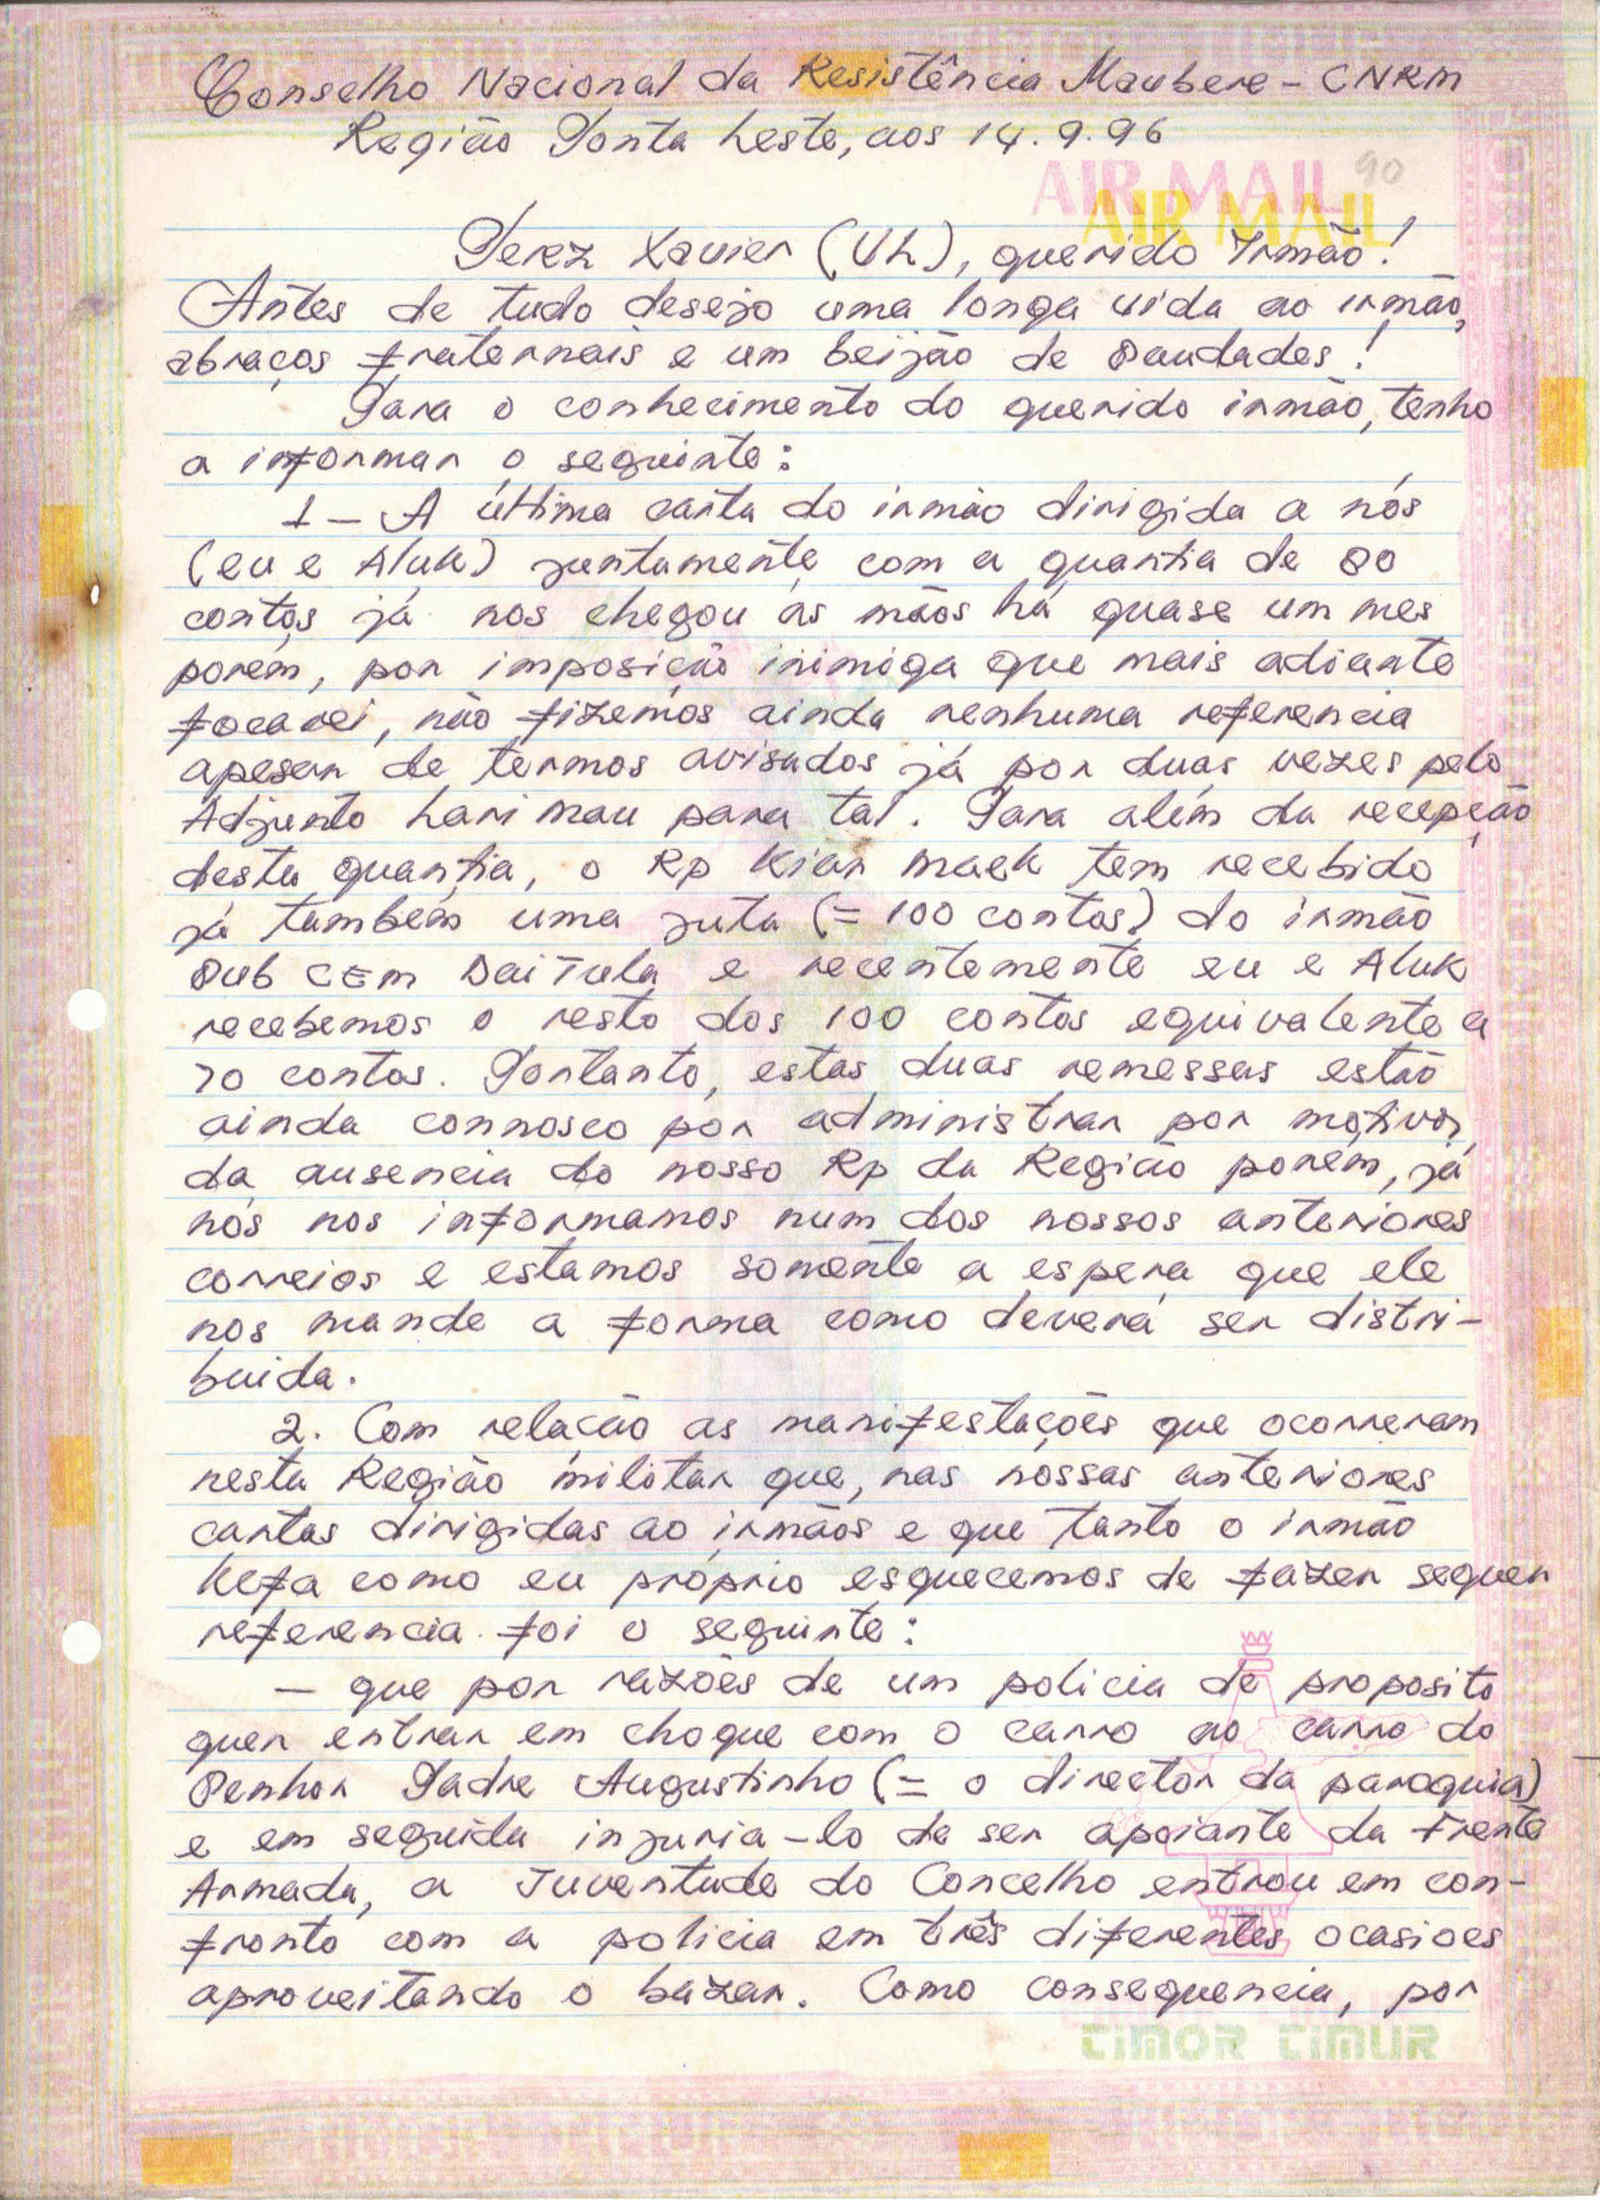 Conselho Nacional da Resistência Maubere - CNRM
Região Ponta Leste, aos 14.9.96
AIR MAIL 90
AIR MAIL
Perez Xavier (UL), querido Irmão!
Antes de tudo desejo uma longa vida ao irmão,
abraços fraternais e um beijão de Saudades!
Para o conhecimento do querido irmão, tenho
a informar o seguinte:
1 - A última carta do irmão dirigida a nós
(eu e Aluk) juntamente com a quantia de 80
contos já nos chegou às mãos há quase um mes
porém, por imposição inimiga que mais adiante
focarei, não fizemos ainda nenhuma referencia
apesar de termos avisados já por duas vezes pelo
Adjunto Lari Mau para tal. Para além da recepção
desta quantia, o Rp Kiar Maek tem recebido
já também uma juta (= 100 contos) do irmão
Sub CEM Dai Tula e recentemente eu e Aluk
recebemos o resto dos 100 contos equivalente a
70 contos. Portanto, estas duas remessas estão
ainda connosco por administrar por motivos
da ausencia do nosso Rp da Região porém, já
nós nos informamos num dos nossos anteriores
correios e estamos somente a espera que ele
nos mande a forma como deverá ser distri-
buida.
2. Com relação as manifestações que ocorreram
nesta Região militar que, nas nossas anteriores
cartas dirigidas ao irmãos e que tanto o irmão
Kefa como eu próprio esquecemos de fazer sequer
referencia foi o seguinte:
- que por razões de um policia de proposito
quer entrar em choque com o carro ao carro do
Senhor Padre Augustinho (= o director da paroquia)
e em seguida injuria-lo de ser apoiante da Frente
Armada, a Juventude do Concelho entrou em con-
fronto com a policia em três diferentes ocasioes
aproveitando o bazar. Como consequencia, por
TIMOR TIMUR